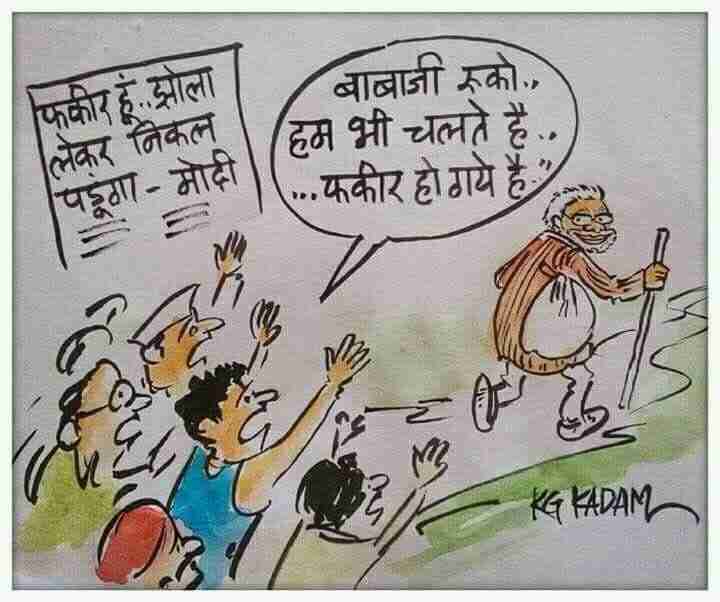 फकीर हूं..झोला
लेकर निकल
पडूंगा - मोदी
बाबाजी रूको..
हम भी चलते है..
...फकीर हो गये है.."
KG KADAM